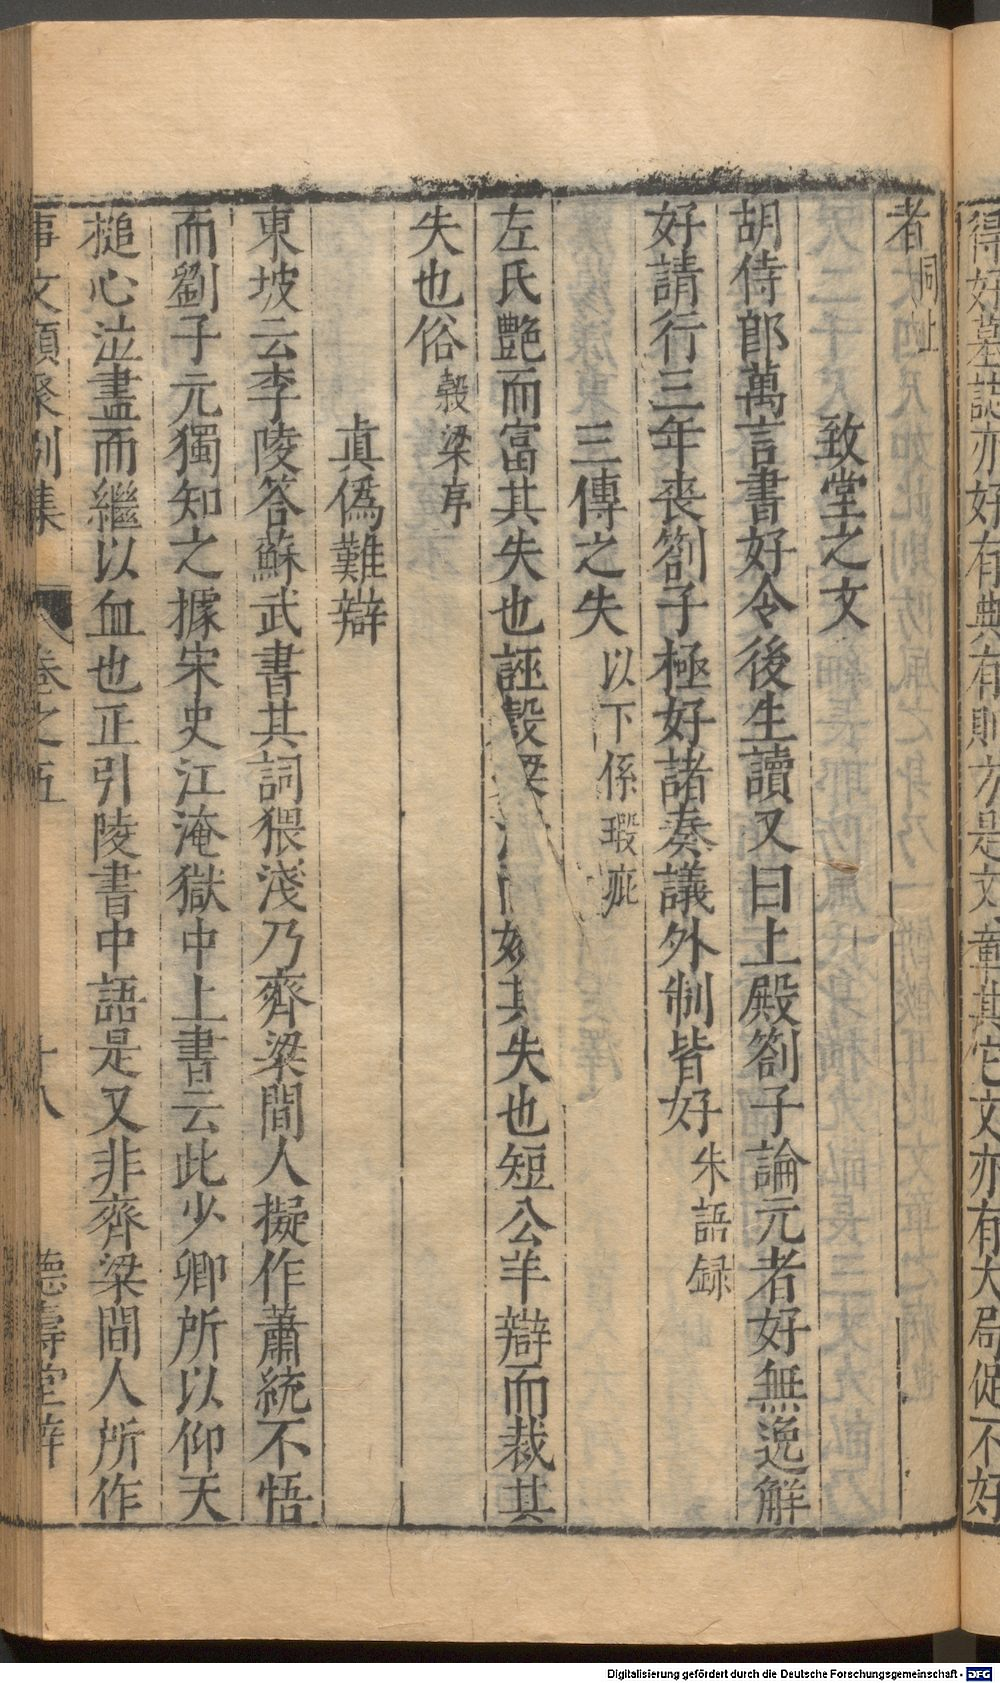 得好墓誌亦好有典有則方是文章其它文亦有大局促不好
者同上
致堂之文
胡侍郎萬言書好令後生讀又曰上殿劄子論元者好無逸解
好請行三年喪劄子極好諸奏議外制皆好朱語録
三傳之失以下係瑕疵
左氏艷而富其失也誣穀梁清而婉其失也短公羊辯而裁其
失也俗穀梁序
真偽難辯
東坡云李陵答蘇武書其詞猥淺乃齊梁間人擬作蕭統不悟
而劉子元獨知之據宋史江淹獄中上書云此少卿所以仰天
槌心泣盡而繼以血也正引陵書中語是又非齊梁間人所作
事文類聚別集 卷之五 十八 德壽堂梓
Digitalisierung gefördert durch die Deutsche Forschungsgemeinschaft - DFG